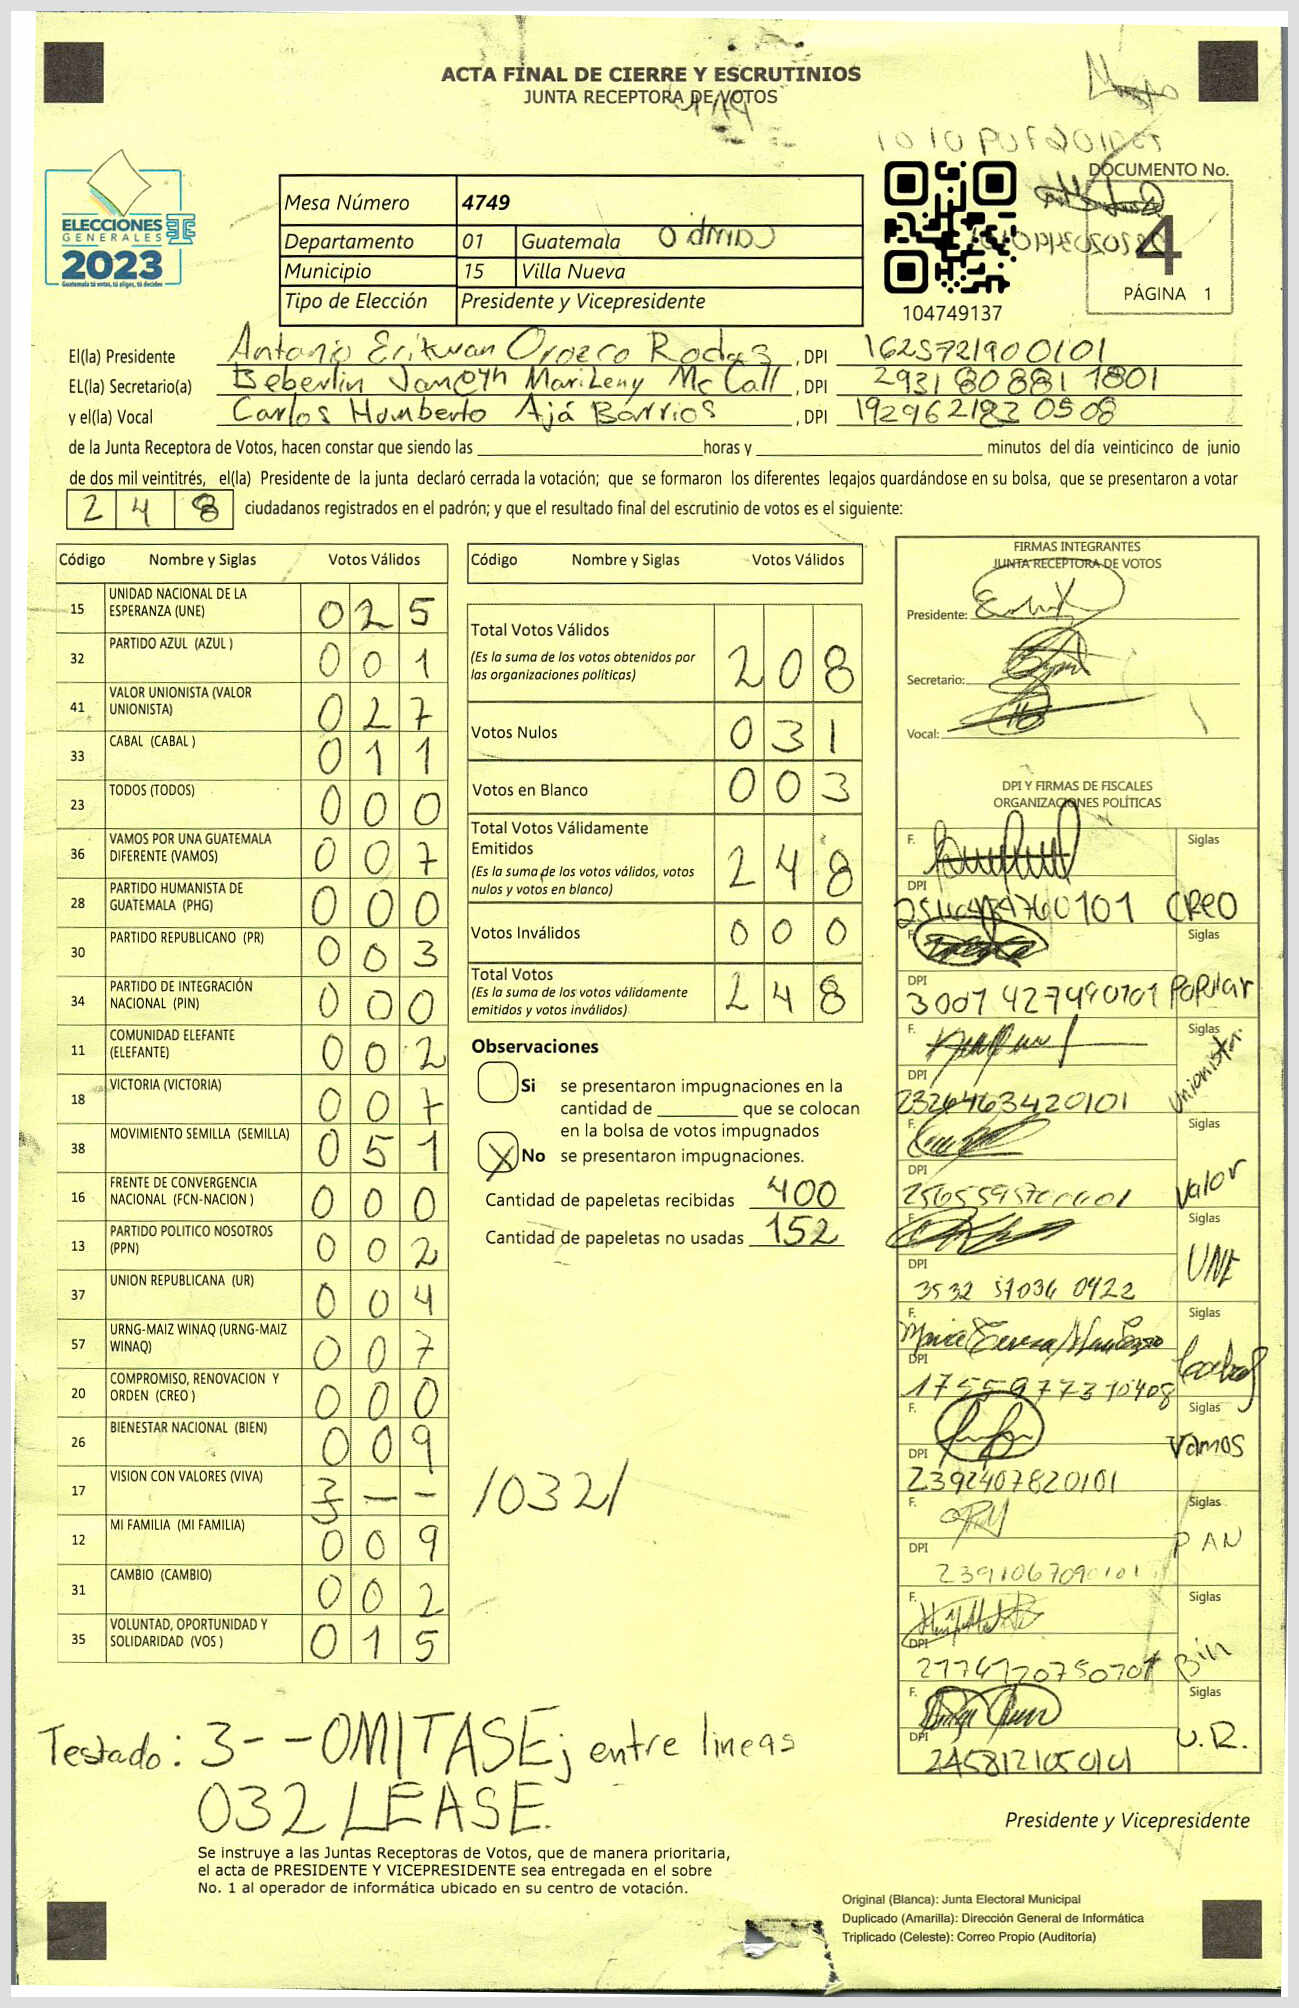 ACTA FINAL DE CIERRE Y ESCRUTINIOS
JUNTA RECEPTORA DE VOTOS
ELECCIONES
GENERALES
2023
Guatemala tú votas, tú eliges, tú decides
Mesa Número 4749
Departamento 01 Guatemala
Municipio 15 Villa Nueva
Tipo de Elección Presidente y Vicepresidente
104749137
DOCUMENTO No.
4
PÁGINA 1
El(la) Presidente Antonio Erikwan Orozco Rodas, DPI 1625721900101
EL(la) Secretario(a) Beberlin Janeth Marileny Mc Call, DPI 2931808811801
y el(la) Vocal Carlos Humberto Ajá Barrios, DPI 1929621830508
de la Junta Receptora de Votos, hacen constar que siendo las horas y minutos del día veinticinco de junio
de dos mil veintitrés, el(la) Presidente de la junta declaró cerrada la votación; que se formaron los diferentes legajos guardándose en su bolsa, que se presentaron a votar
248 ciudadanos registrados en el padrón; y que el resultado final del escrutinio de votos es el siguiente:
Código Nombre y Siglas Votos Válidos
15 UNIDAD NACIONAL DE LA ESPERANZA (UNE) 025
32 PARTIDO AZUL (AZUL ) 001
41 VALOR UNIONISTA (VALOR UNIONISTA) 027
33 CABAL (CABAL ) 011
23 TODOS (TODOS) 000
36 VAMOS POR UNA GUATEMALA DIFERENTE (VAMOS) 007
28 PARTIDO HUMANISTA DE GUATEMALA (PHG) 000
30 PARTIDO REPUBLICANO (PR) 003
34 PARTIDO DE INTEGRACIÓN NACIONAL (PIN) 000
11 COMUNIDAD ELEFANTE (ELEFANTE) 002
18 VICTORIA (VICTORIA) 007
38 MOVIMIENTO SEMILLA (SEMILLA) 051
16 FRENTE DE CONVERGENCIA NACIONAL (FCN-NACION ) 000
13 PARTIDO POLITICO NOSOTROS (PPN) 002
37 UNION REPUBLICANA (UR) 004
57 URNG-MAIZ WINAQ (URNG-MAIZ WINAQ) 007
20 COMPROMISO, RENOVACION Y ORDEN (CREO ) 000
26 BIENESTAR NACIONAL (BIEN) 009
17 VISION CON VALORES (VIVA) 3 - - /032/
12 MI FAMILIA (MI FAMILIA) 009
31 CAMBIO (CAMBIO) 002
35 VOLUNTAD, OPORTUNIDAD Y SOLIDARIDAD (VOS ) 015
Código Nombre y Siglas Votos Válidos
Total Votos Válidos 208
(Es la suma de los votos obtenidos por
las organizaciones políticas)
Votos Nulos 031
Votos en Blanco 003
Total Votos Válidamente
Emitidos 248
(Es la suma de los votos válidos, votos
nulos y votos en blanco)
Votos Inválidos 000
Total Votos 248
(Es la suma de los votos válidamente
emitidos y votos inválidos)
Observaciones
Si se presentaron impugnaciones en la
cantidad de que se colocan
en la bolsa de votos impugnados
X No se presentaron impugnaciones.
Cantidad de papeletas recibidas 400
Cantidad de papeletas no usadas 152
FIRMAS INTEGRANTES
JUNTA RECEPTORA DE VOTOS
Presidente:
Secretario:
Vocal:
DPI Y FIRMAS DE FISCALES
ORGANIZACIONES POLÍTICAS
F. Siglas
DPI CREO
F. Siglas
DPI 3007427490101 Popular
F. Siglas
DPI 2326463420101 Unionista
F. Siglas
DPI Valor
F. Siglas
DPI UNE
F. Siglas
DPI Cabal
F. Siglas
DPI 2392407820101 Vamos
F. Siglas
DPI 2391067090101 PAN
F. Siglas
DPI Bin
F. Siglas
DPI 2458121050101 U.R.
Testado: 3--OMITASE; entre lineas
032 LEASE.
Presidente y Vicepresidente
Se instruye a las Juntas Receptoras de Votos, que de manera prioritaria,
el acta de PRESIDENTE Y VICEPRESIDENTE sea entregada en el sobre
No. 1 al operador de informática ubicado en su centro de votación.
Original (Blanca): Junta Electoral Municipal
Duplicado (Amarilla): Dirección General de Informática
Triplicado (Celeste): Correo Propio (Auditoría)